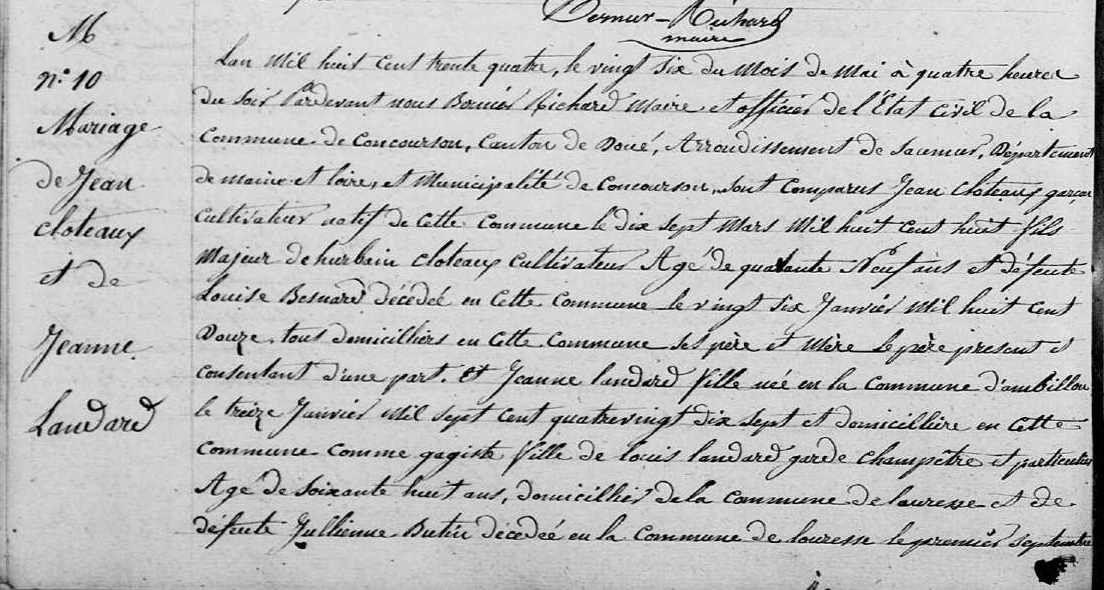 Richard
maire
M
n.° 10
Mariage
de Jean
cloteaux
et de
Jeanne
Landard
Lan Mil huit cent trente quatre, le vingt six du Mois de Mai à quatre heures
du soir Pardevant nous Richard Maire et officier de l'Etat civil de la
Commune de Concourson, Canton de Doué, Arrondissement de Saumur, Département
de maine et loire, et Municipalité de Concourson, sont comparus Jean cloteaux garçon
Cultivateur natif de cette Commune le dix sept Mars Mil huit cent huit fils
Majeur de hurbain cloteaux Cultivateur Agé de quarante Neuf ans et défeute
Louise Besnard décédée en cette Commune le vingt six Janvier Mil huit cent
Douze. tous domicilliers en cette Commune ses père et Mère le père present et
consentant d'une part. et Jeanne landard fille née en la commune d'ambillou
le treize Janvier Mil sept cent quatrevingt dix sept et domicilliére en cette
Commune comme gagiste fille de louis landard garde champêtre et particulier
Agé de soixante huit ans, domicillier de la commune de louresse et de
défeute Jullienne Butin décédée en la Commune de louresse le premier septembre